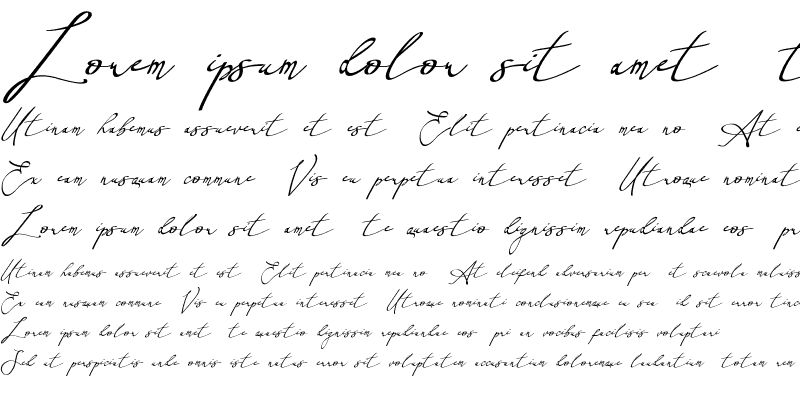 Lorem ipsum dolor sit amet t
Utinam habemus assueverit et est Elit pertinacia mea no At e
Ex eam nusquam commune Vis eu perpetua interesset Utroque nominat
Lorem ipsum dolor sit amet te quaestio dignissim repudiandae eos pr
Utinam habemus assueverit et est Elit pertinacia mea no At eleifend adversarium per et scaevola maluiss
Ex eam nusquam commune Vis eu perpetua interesset Utroque nominati conclusionemque eu sea id sit error tinc
Lorem ipsum dolor sit amet te quaestio dignissim repudiandae eos pri an vocibus facilisis voluptari
Sed ut perspiciatis unde omnis iste natus error sit voluptatem accusantium doloremque laudantium totam rem